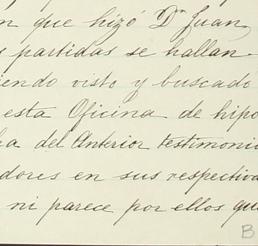 n que hizó Dn Juan
s partidas se hallan
iendo visto y buscado
esta Oficina de hipo
ha del Anterior testimonio
dores en sus respectiva
ni parece por ellos que
B